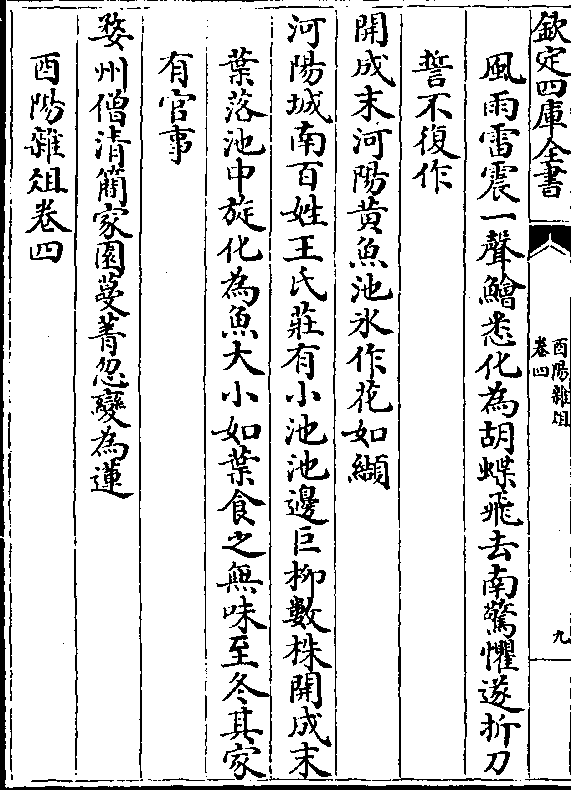 欽定四庫全書
酉陽雜俎
卷四
九
風雨雷震一聲鱠悉化為胡蝶飛去南驚懼遂折刀
誓不復作
開成末河陽黃魚池冰作花如纈
河陽城南百姓王氏莊有小池池邊巨柳數株開成末
葉落池中旋化為魚大小如葉食之無味至冬其家
有官事
婺州僧清簡家園蔓菁忽變為蓮
酉陽雜俎卷四